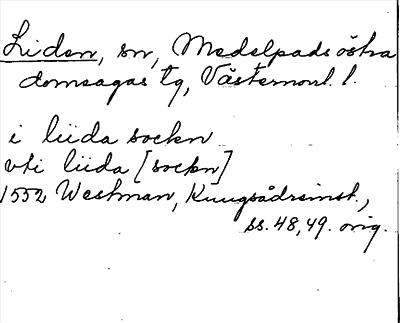 Liden, sn, Medelpads östra
domsagas tg, Västernorrl. l.
i liida sockn
vti liida [sockn]
1552 Westman, Kungsådreinst.,
ss. 48, 49. orig.